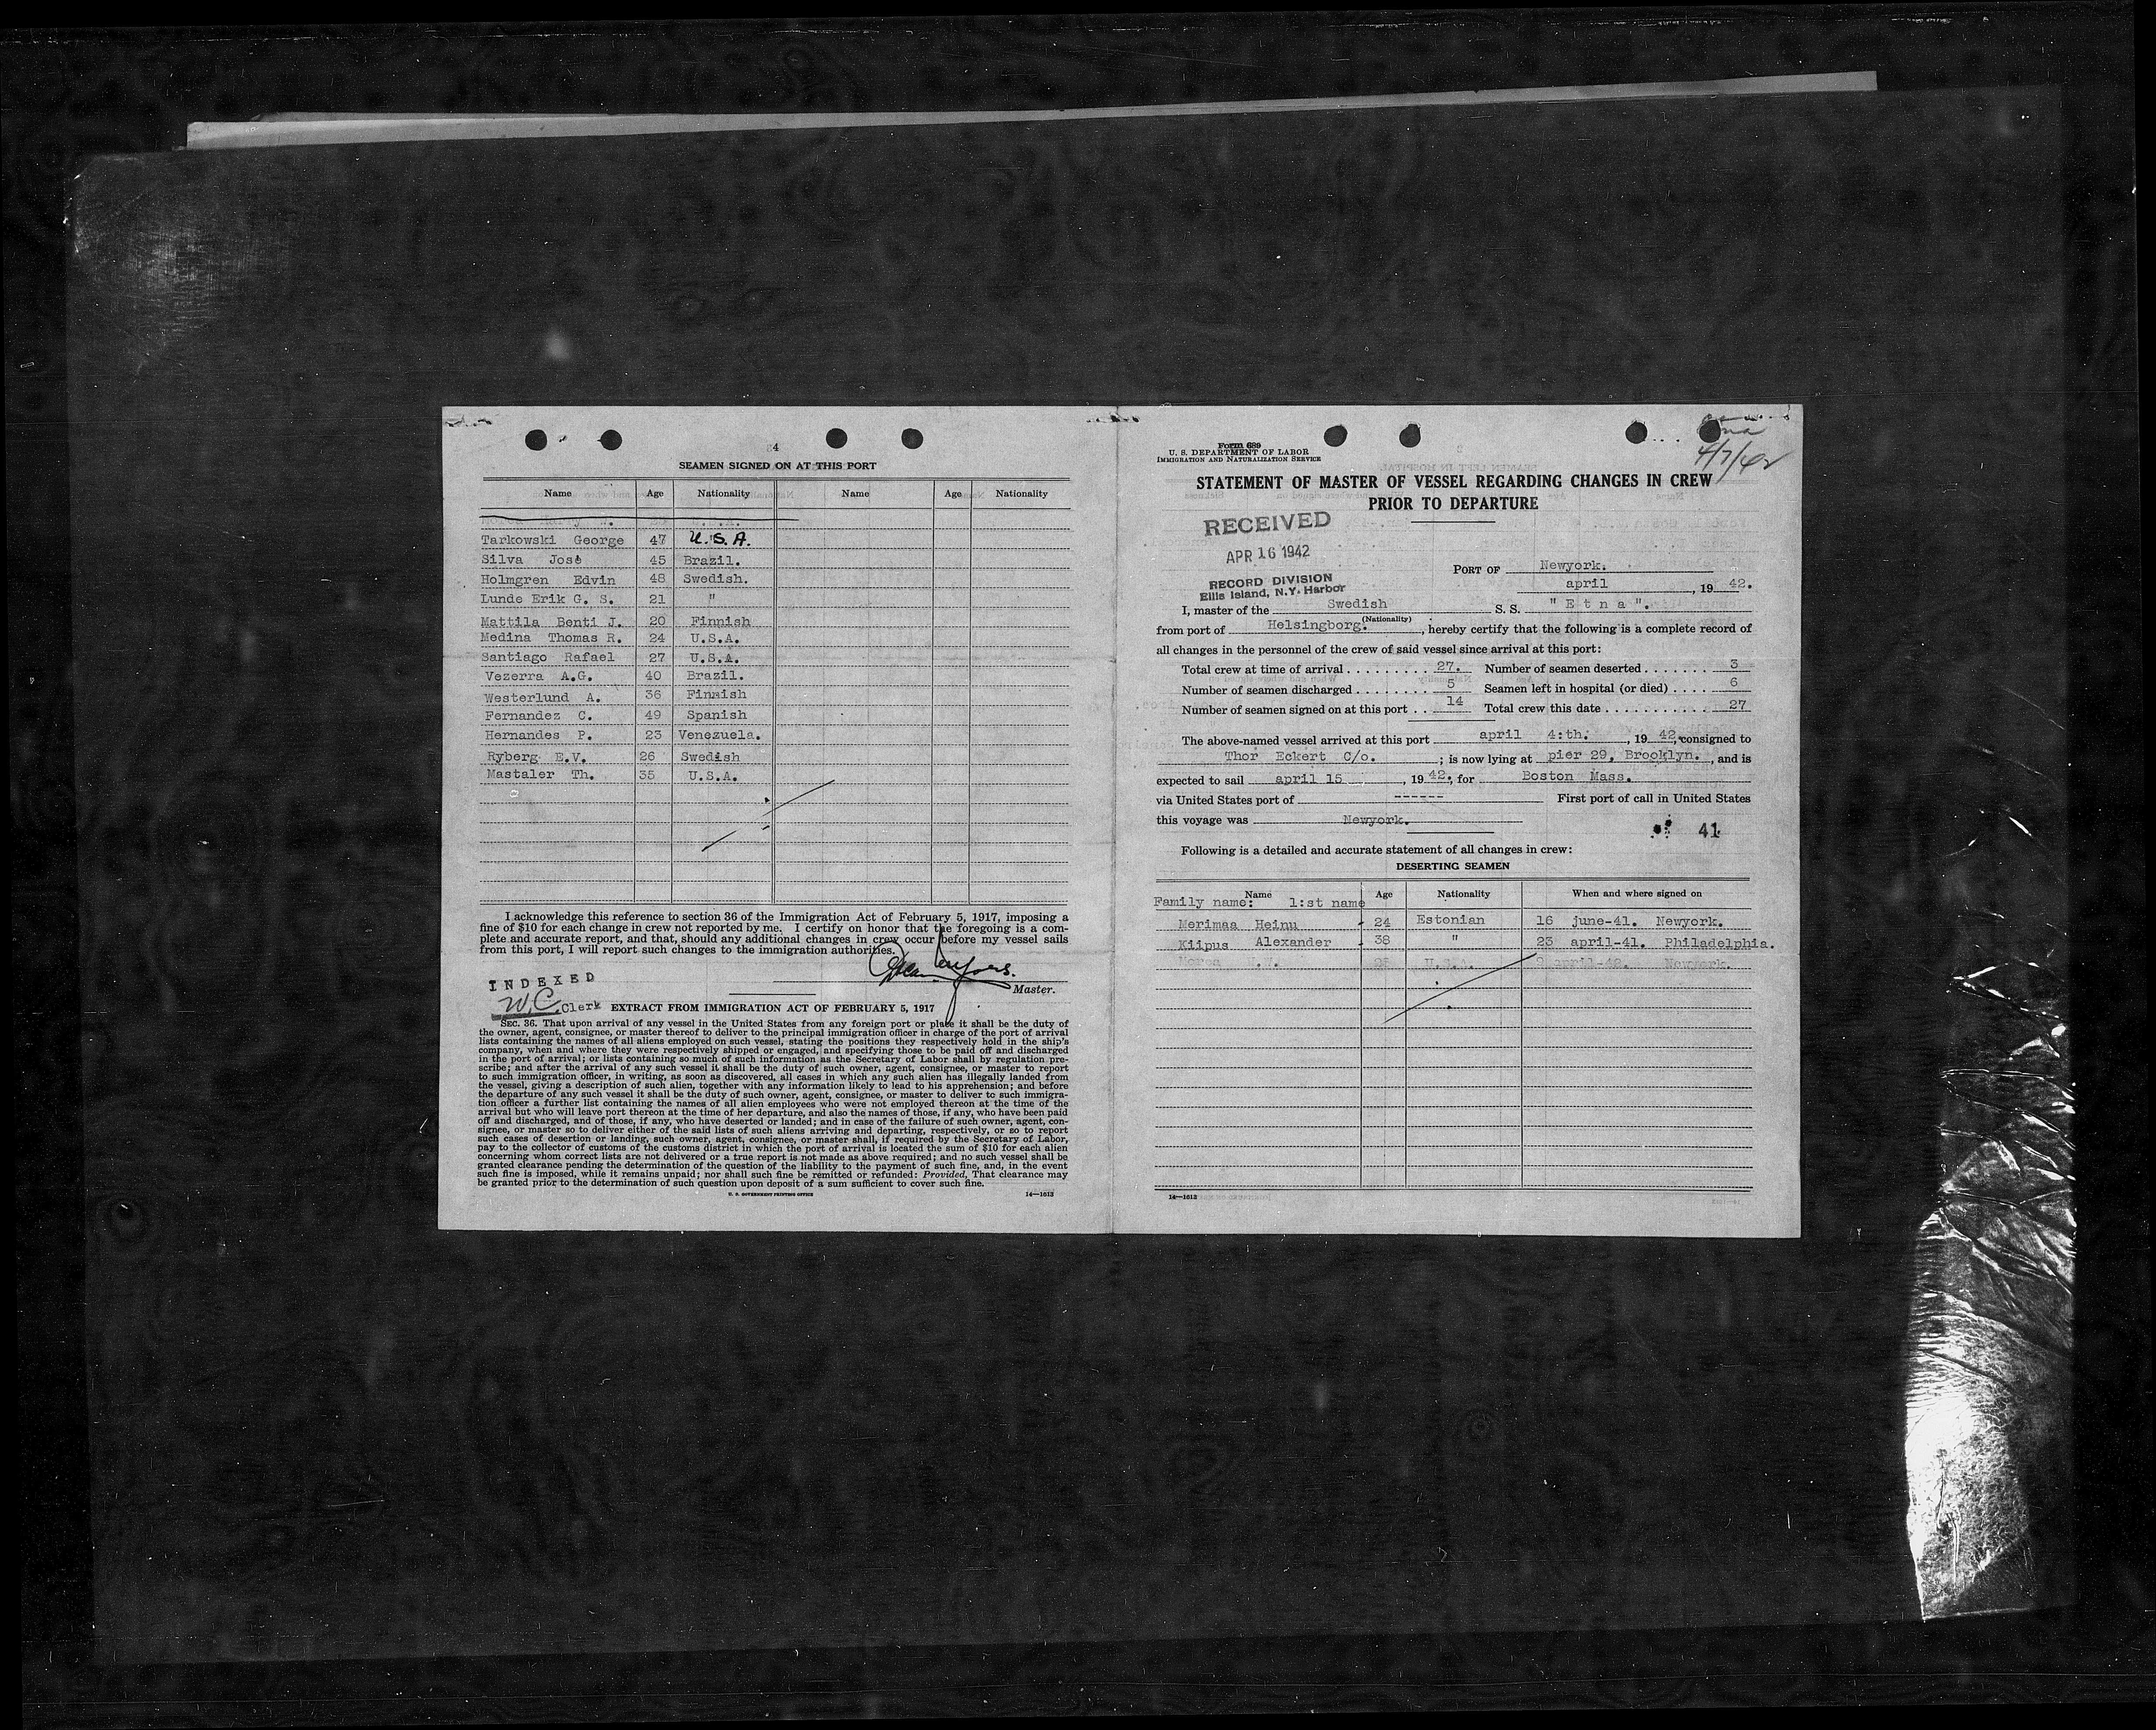 4
SEAMEN SIGNED ON AT THIS PORT
Name Age Nationality Name Age Nationality
Tarkowski George 47 U.S.A.
Silva José 45 Brazil.
Holmgren Edvin 48 Swedish.
Lunde Erik G. S. 21 "
Mattila Benti J. 20 Finnish
Medina Thomas R. 24 U.S.A.
Santiago Rafael 27 U.S.A.
Vezerra A.G. 40 Brazil.
Westerlund A. 36 Finnish
Fernandez C. 49 Spanish
Hernandes P. 23 Venezuela.
Ryberg E.V. 26 Swedish
Mastaler Th. 35 U.S.A.
I acknowledge this reference to section 36 of the Immigration Act of February 5, 1917, imposing a
fine of $10 for each change in crew not reported by me. I certify on honor that the foregoing is a com-
plete and accurate report, and that, should any additional changes in crew occur before my vessel sails
from this port, I will report such changes to the immigration authorities.
Master.
INDEXED
W.C. Clerk
EXTRACT FROM IMMIGRATION ACT OF FEBRUARY 5, 1917
SEC. 36. That upon arrival of any vessel in the United States from any foreign port or place it shall be the duty of
the owner, agent, consignee, or master thereof to deliver to the principal immigration officer in charge of the port of arrival
lists containing the names of all aliens employed on such vessel, stating the positions they respectively hold in the ship's
company, when and where they were respectively shipped or engaged, and specifying those to be paid off and discharged
in the port of arrival; or lists containing so much of such information as the Secretary of Labor shall by regulation pre-
scribe; and after the arrival of any such vessel it shall be the duty of such owner, agent, consignee, or master to report
to such immigration officer, in writing, as soon as discovered, all cases in which any such alien has illegally landed from
the vessel, giving a description of such alien, together with any information likely to lead to his apprehension; and before
the departure of any such vessel it shall be the duty of such owner, agent, consignee, or master to deliver to such immigra-
tion officer a further list containing the names of all alien employees who were not employed thereon at the time of the
arrival but who will leave port thereon at the time of her departure, and also the names of those, if any, who have been paid
off and discharged, and of those, if any, who have deserted or landed; and in case of the failure of such owner, agent, con-
signee, or master so to deliver either of the said lists of such aliens arriving and departing, respectively, or so to report
such cases of desertion or landing, such owner, agent, consignee, or master shall, if required by the Secretary of Labor,
pay to the collector of customs of the customs district in which the port of arrival is located the sum of $10 for each alien
concerning whom correct lists are not delivered or a true report is not made as above required; and no such vessel shall be
granted clearance pending the determination of the question of the liability to the payment of such fine, and, in the event
such fine is imposed, while it remains unpaid; nor shall such fine be remitted or refunded: Provided, That clearance may
be granted prior to the determination of such question upon deposit of a sum sufficient to cover such fine.
U. S. GOVERNMENT PRINTING OFFICE 14—1613
Form 689
U. S. DEPARTMENT OF LABOR
IMMIGRATION AND NATURALIZATION SERVICE
4/7/42
STATEMENT OF MASTER OF VESSEL REGARDING CHANGES IN CREW
PRIOR TO DEPARTURE
RECEIVED
APR 16 1942
RECORD DIVISION
Ellis Island, N.Y. Harbor
PORT OF Newyork.
april, 19 42.
I, master of the Swedish S. S. " E t n a ".
(Nationality)
from port of Helsingborg., hereby certify that the following is a complete record of
all changes in the personnel of the crew of said vessel since arrival at this port:
Total crew at time of arrival . . . . . . . . . 27. Number of seamen deserted . . . . . . . 3
Number of seamen discharged . . . . . . . . 5 Seamen left in hospital (or died) . . . . 6
Number of seamen signed on at this port . . 14 Total crew this date . . . . . . . . . . . 27
The above-named vessel arrived at this port april 4:th., 19 42, consigned to
Thor Eckert C/o. ; is now lying at pier 29, Brooklyn. , and is
expected to sail april 15, 19 42., for Boston Mass.
via United States port of ------ First port of call in United States
this voyage was Newyork.
41
Following is a detailed and accurate statement of all changes in crew:
DESERTING SEAMEN
Name Age Nationality When and where signed on
Family name: 1:st name
Merimaa Heinu 24 Estonian 16 june-41. Newyork.
Kiipus Alexander 38 " 23 april-41. Philadelphia.
Morea W.W. 25 U.S.A. 9 april-42. Newyork.
14—1613